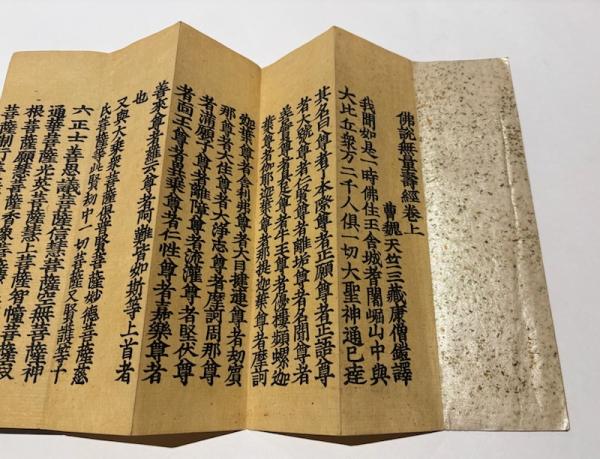 佛説無量壽經卷上
曹魏天竺三藏康僧鎧譯
我聞如是一時佛住王舍城耆闍崛山中與
大比丘衆万二千人倶一切大聖神通已達
其名曰尊者了本際尊者正願尊者正語尊
者大號尊者仁賢尊者離垢尊者名聞尊者
善實尊者具足尊者牛王尊者優樓頻螺迦
葉尊者伽耶迦葉尊者那提迦葉尊者摩訶
迦葉尊者舍利弗尊者大目揵連尊者劫賓
那尊者大住尊者大淨志尊者摩訶周那尊
者滿願子尊者離障尊者流灌尊者堅伏尊
者面王尊者異乘尊者仁性尊者嘉樂尊者
善來尊者羅云尊者阿難皆如斯等上首者
也
又與大乘衆菩薩倶普賢菩薩妙德菩薩慈
氏菩薩等此賢劫中一切菩薩又賢護等十
六正士善思議菩薩信慧菩薩空無菩薩神
通華菩薩光英菩薩慧上菩薩智幢菩薩寂
根菩薩願慧菩薩香象菩薩
菩薩制行菩薩